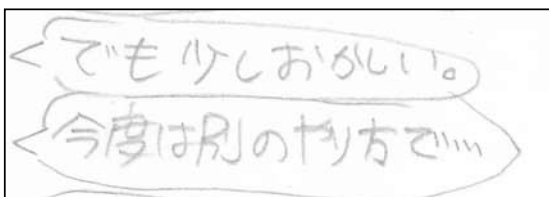 でも少しおかしい。
今度は別のやり方で…